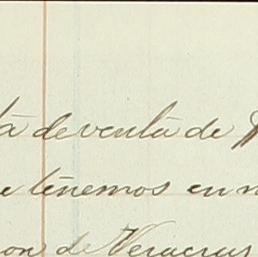 ta de venta de
e tenemos en n
on de Veracruz